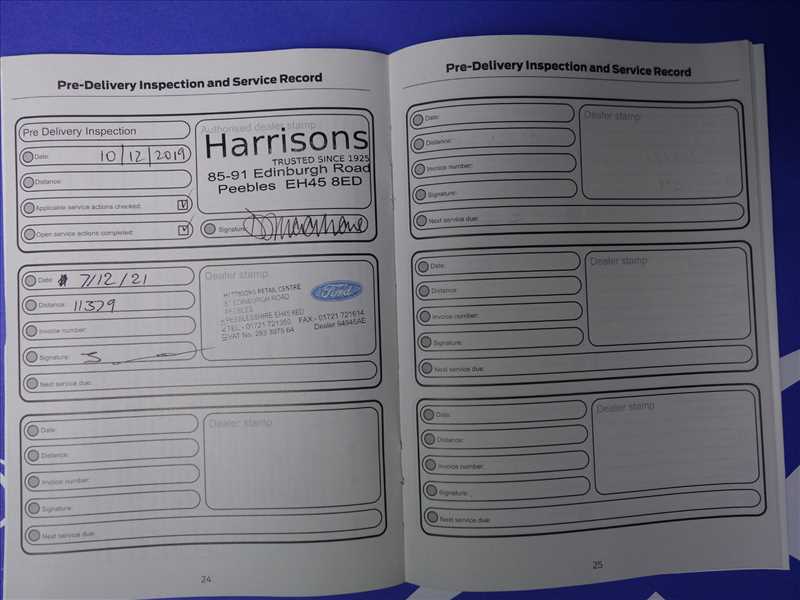 Pre-Delivery Inspection and Service Record
Pre Delivery Inspection
Date: 10/12/2019
Distance:
Applicable service actions checked:
Open service actions completed:
Authorised dealer stamp
Harrisons
TRUSTED SINCE 1925
85-91 Edinburgh Road
Peebles EH45 8ED
Signature:
Date: 7/12/21
Distance: 11379
Invoice number:
Signature:
Next service due:
Dealer stamp
HARRISONS RETAIL CENTRE
EDINBURGH ROAD
PEEBLES
PEEBLESSHIRE EH45 8ED
TEL - 01721 721350 FAX - 01721 721614
VAT No. 263 3975 64 Dealer 94945AE
Ford
Date:
Distance:
Invoice number:
Signature:
Next service due:
Dealer stamp
24
Pre-Delivery Inspection and Service Record
Date:
Distance:
Invoice number:
Signature:
Next service due:
Dealer stamp
Date:
Distance:
Invoice number:
Signature:
Next service due:
Dealer stamp
Date:
Distance:
Invoice number:
Signature:
Next service due:
Dealer stamp
25